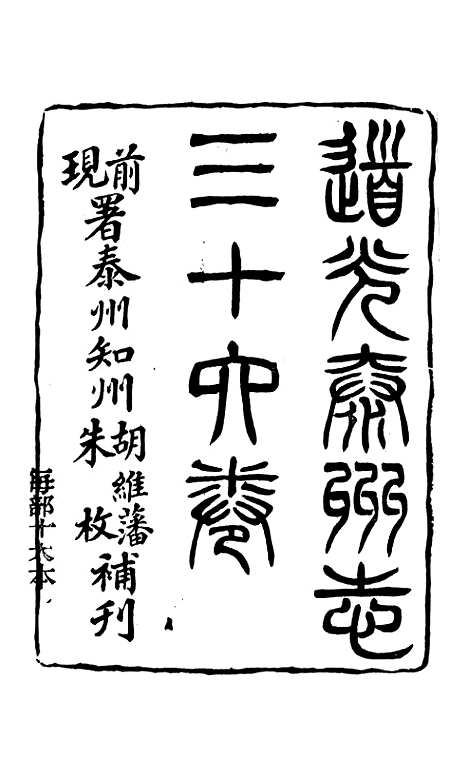 道光泰州志
三十六卷
前現署泰州知州胡維藩朱枚補刊
每部十六本